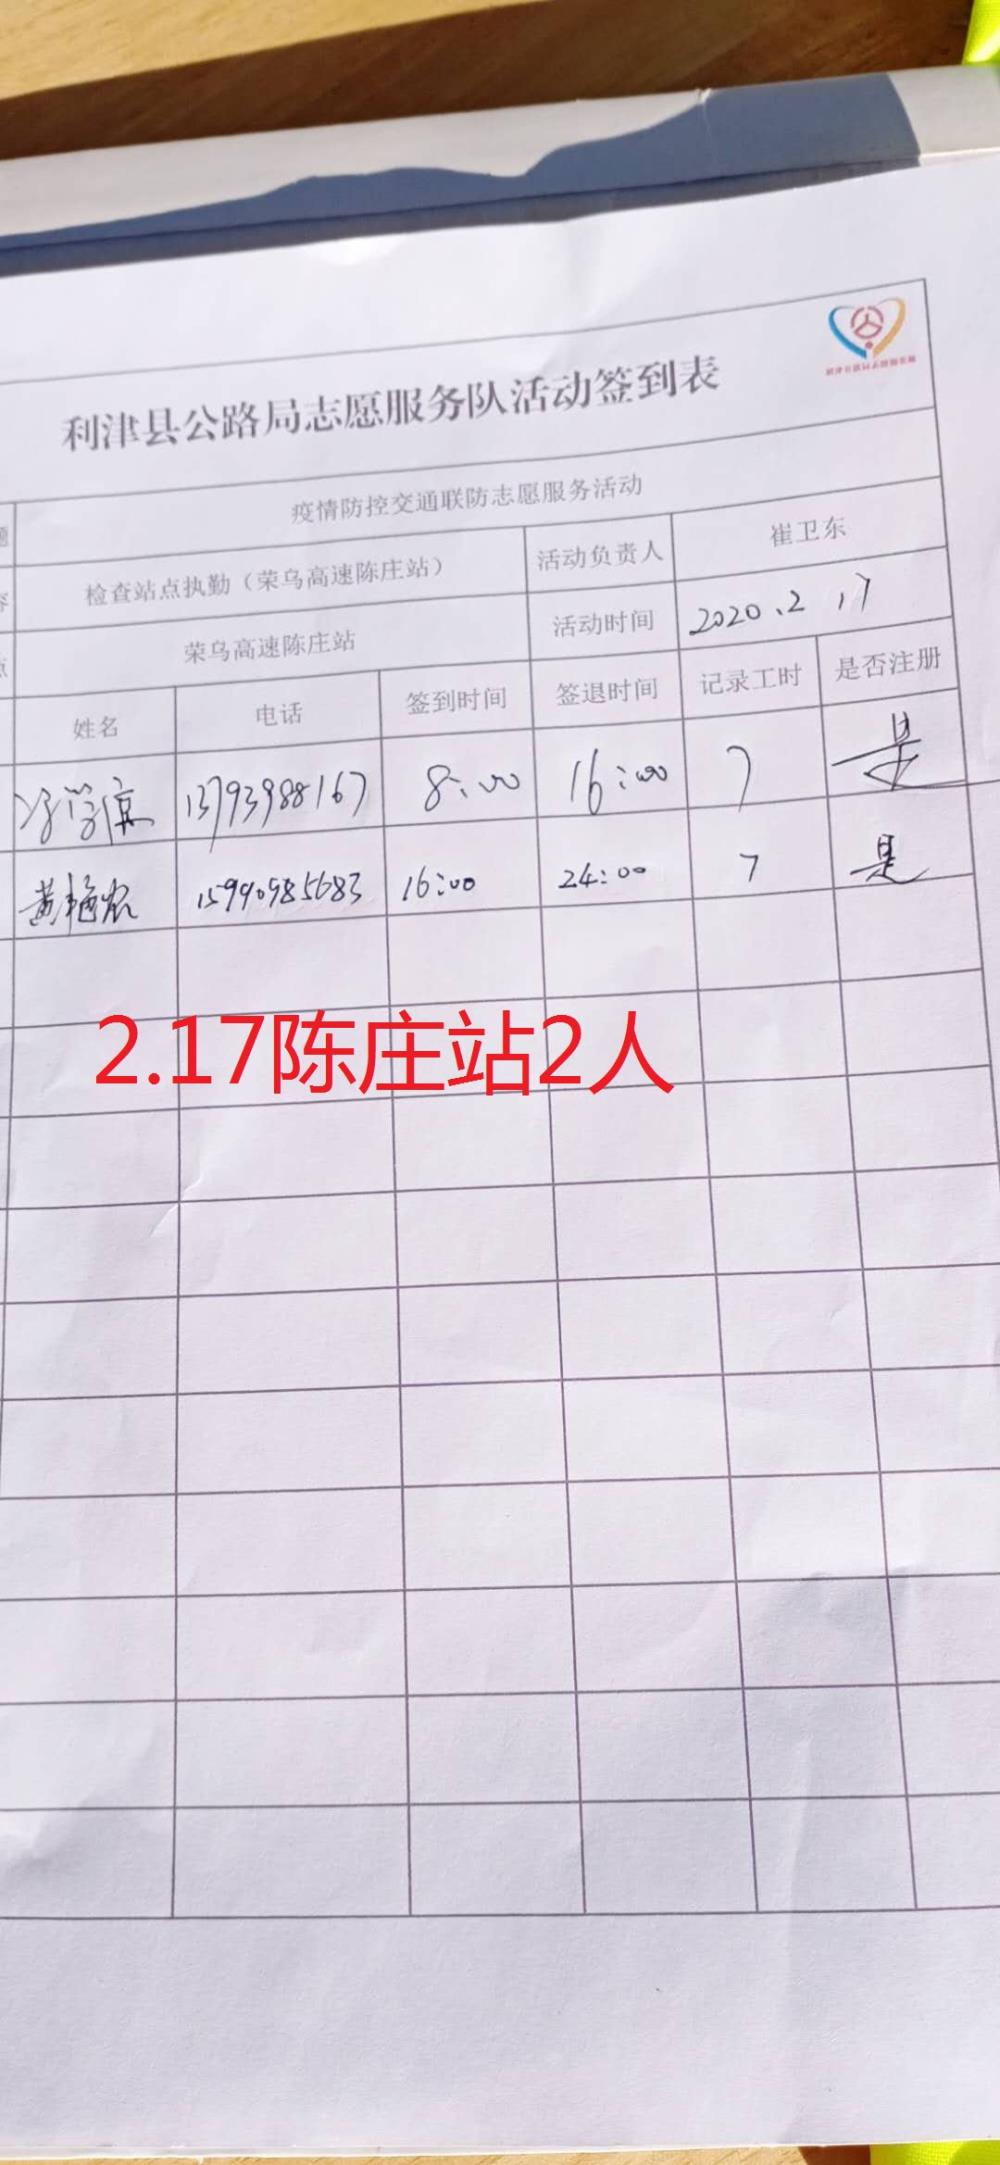 利津县公路局志愿服务队活动签到表
疫情防控交通联防志愿服务活动
检查站点执勤（荣乌高速陈庄站） 活动负责人 崔卫东
荣乌高速陈庄站 活动时间 2020.2 17
姓名 电话 签到时间 签退时间 记录工时 是否注册
13793988167 8:00 16:00 7 是
黄艳 15990985683 16:00 24:00 7 是
2.17陈庄站2人